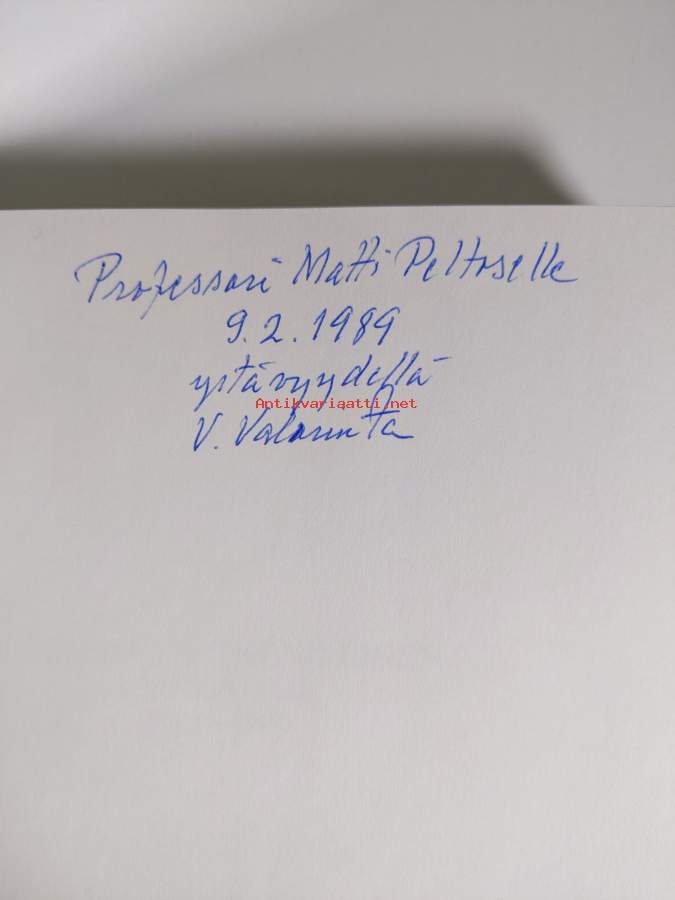 Professori Matti Peltoselle
9.2.1989
ystävyydellä
Antikvariaatti.net
V. Valarinta